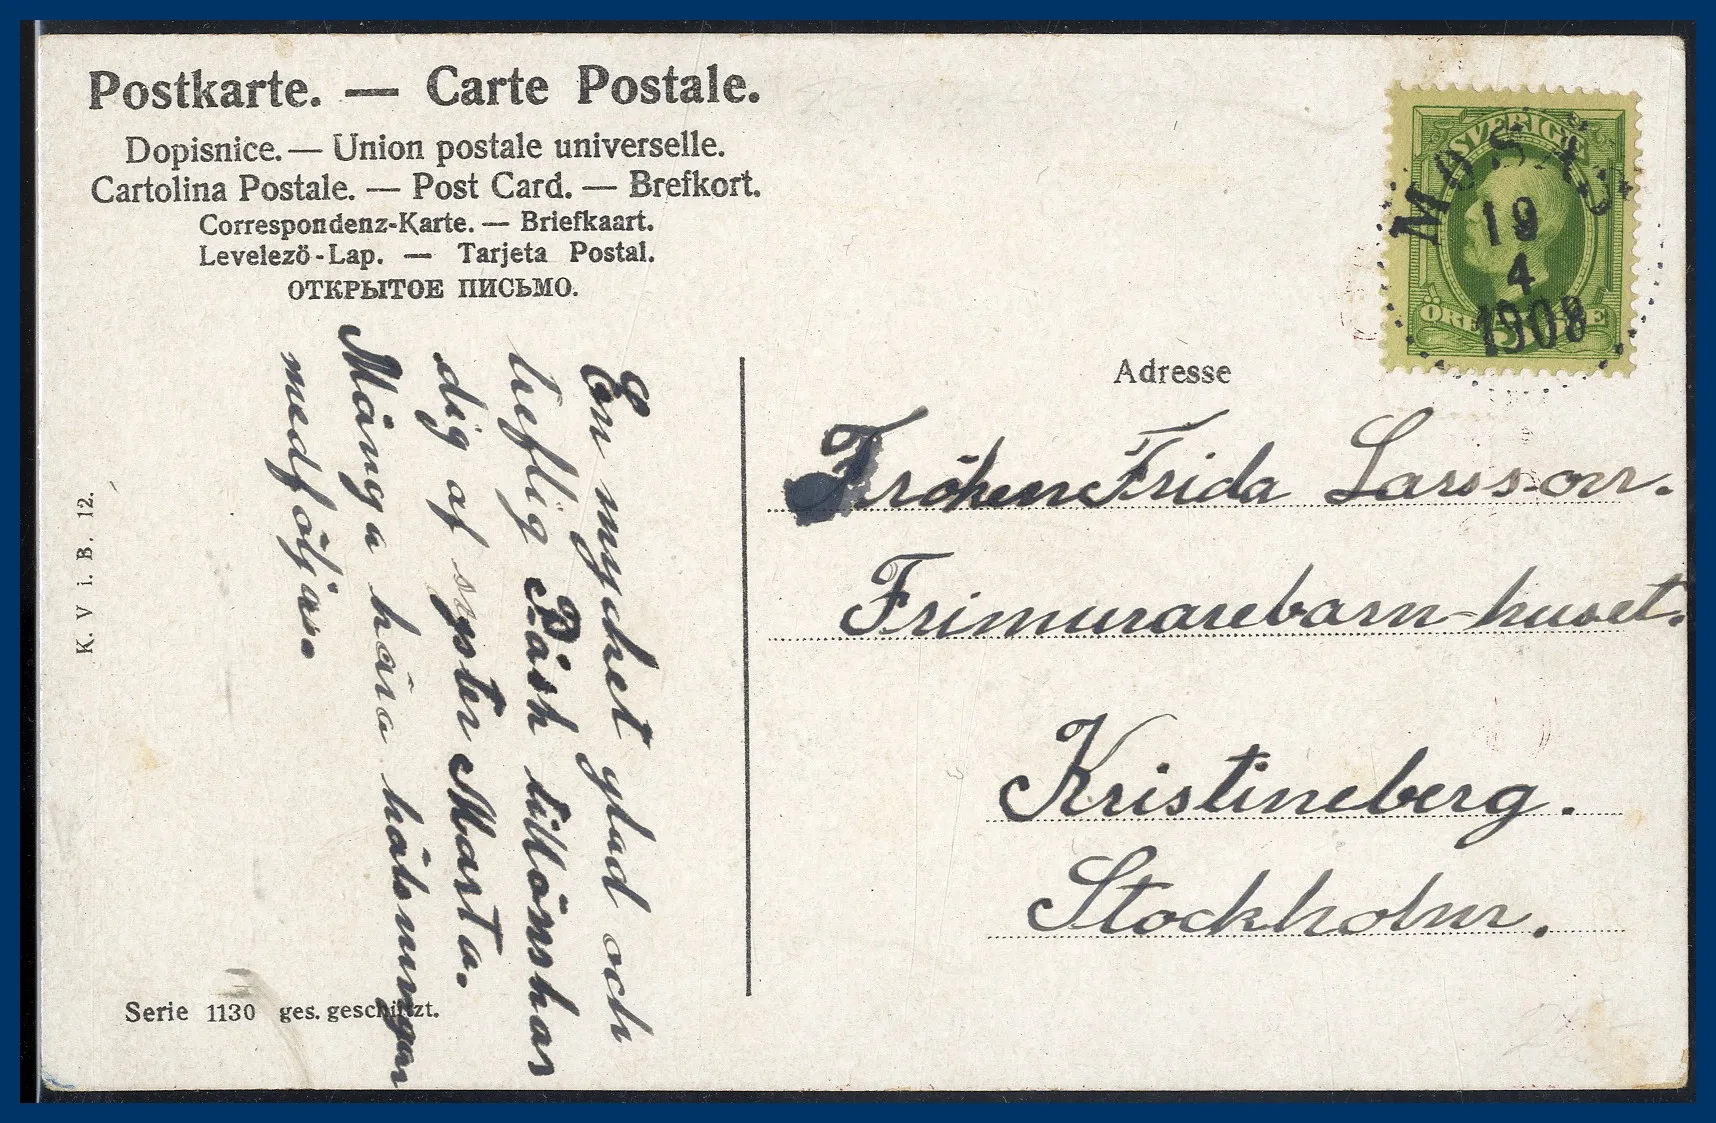 Postkarte. — Carte Postale.
Dopisnice. — Union postale universelle.
Cartolina Postale. — Post Card. — Brefkort.
Correspondenz-Karte. — Briefkaart.
Levelezö-Lap. — Tarjeta Postal.
ОТКРЫТОЕ ПИСЬМО.
SVERIGE
19
4
1908
ÖRE
Adresse
Fröken Frida Larsson.
Frimurarebarn-huset.
Kristineberg.
Stockholm.
En mycket glad och
treflig Påsk tillönskas
dig af syster Marta.
Många kära hälsningar
medföljer.
K. V i. B. 12.
Serie 1130 ges. geschützt.